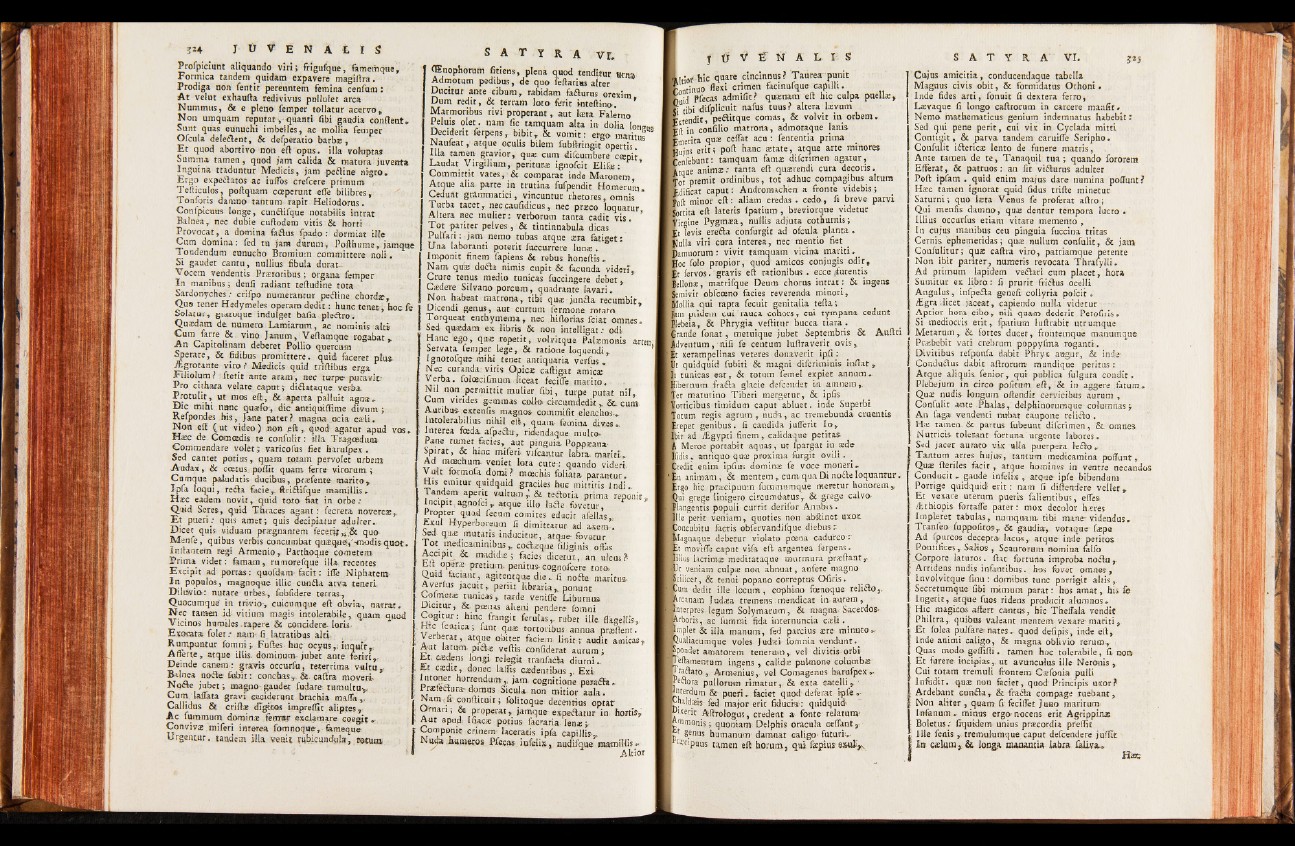 324 JUVENALIS
Prospiciunt aliquando viri; frigusque, famemque,
Formica tandem quidam expavere magistra.
Prodiga non sentit pereuntem femina censum:
At velut exhausta redivivus pullulet arca
Nummus, & e pleno semper tollatur acervo,
Non umquam reputat, quanti sibi gaudia constent.
Sunt quas eunuchi imbelles, ac mollia semper
Oscula delectent, & desperatio barbæ,
Et quod abortivo non est opus. illa voluptas
Summa tamen, quod jam calida & matura juventa
Inguina traduntur Medicis, jam pectine nigro.
Ergo expectatos ac jussos crescere primum
Testiculos, postquam cœperunt esse bilibres,
Tonsoris damno tantum rapit Heliodorus.
Conspicuus longe, cunctisque notabilis intrat
Balnea, nec dubie custodem vitis & horti
Provocat, a domina factus spado: dormiat ille
Cum domina: sed tu jam durum, Posthume, jamque
Tondendum eunucho Bromium committere noli.
Si gaudet cantu, nullius fibula durat
Vocem vendentis Prætoribus; organa semper
In manibus; densi radiant testudine tota
Sardonyches: crispo numerantur pectine chordæ,
Quo tener Hedymeles operam dedit: hunc tenet, hoc se
Solatur, gratoque indulget basia plectro.
Quædam de numero Lamiarum, ac nominis alti
Cum farre & vino Janum, Vestamque rogabat,
An Capitolinam deberet Pollio quercum
Sperare, & fidibus promittere. quid faceret plus
Ægrotante viro? Medicis quid tristibus erga
Filiolum? stetit ante aram, nec turpe putavit
Pro cithara velare caput; dictataque verba
Protulit, ut mos est, & aperta palluit agna.
Dic mihi nunc quæso, dic antiquissime divum;
Respondes his, Jane pater? magna ocia cæli.
Non est (ut video) non est, quod agatur apud vos.
Hæc de Comœdis te consulit: illa Tragœdum
Commendare volet; varicosus fiet haruspex.
Sed cantet potius, quam totam pervolet urbem
Audax, & cœtus possit quam ferre virorum;
Cumque paludatis ducibus, præsente marito,
Ipsa loqui, recta facie, strictisque mamillis.
Hæc eadem novit, quid toto fiat in orbe:
Quid Seres, quid Thraces agant: secreta novercæ,
Et pueri: quis amet; quis decipiatur adulter.
Dicet quis viduam prægnantem fecerit, & quo
Mense, quibus verbis concumbat quæque, modis quot.
Instantem regi Armenio, Parthoque cometem
Prima videt: famam, rumoresque illa recentes
Excipit ad portas: quosdam facit: isse Niphatem
In populos, magnoque illic cuncta arva teneri
Diluvio: nutare urbes, subsidere terras,
Quocumque in trivio, cuicumque est obvia, narrat.
Nec tamen id vitium magis intolerabile, quam quod
Vicinos humiles rapere & concidere loris
Exorata solet: nam si latratibus alti
Rumpuntur somni; Fustes huc ocyus, inquit,
Afferte, atque illis dominum jubet ante feriri,
Deinde canem: gravis occursu, teterrima vultu,
Balnea nocte subit: conchas, & castra moveri
Nocte jubet; magno gaudet sudare tumultu,
Cum lassata gravi ceciderunt brachia massa,
Callidus & cristæ digitos impressit aliptes,
Ac summum dominæ femur exclamare coegit.
Convivæ miseri interea somnoque, fameque
Urgentur. tandem illa venit rubicundula, totum
SATYRA VI.
Œnophorum sitiens, plena quod tenditur urna
Admotum pedibus, de quo sestarius alter
Ducitur ante cibum, rabidam facturus orexim,
Dum redit, & terram loto ferit intestino.
Marmoribus rivi properant, aut læta Falerno
Peluis olet. nam sic tamquam alta in dolia longus
Deciderit serpens, bibit, & vomit: ergo maritus
Nauseat, atque oculis bilem substringit opertis.
Illa tamen gravior, quæ cum discumbere cœpit,
Laudat Virgilium, perituræ ignoscit Elisæ:
Committit vates, & comparat inde Maronem,
Atque alia parte in trutina suspendit Homerum.
Cedunt grammatici, vincuntur rhetores, omnis
Turba tacet, nec causidicus, nec præco loquatur,
Altera nec mulier: verborum tanta cadit vis.
Tot pariter pelves, & tintinnabula dicas
Pulsari: jam nemo tubas atque æra fatiget:
Una laboranti poterit succurrere lunæ.
Imponit finem sapiens & rebus honestis.
Nam quæ docta nimis cupit & facunda videri,
Crure tenus medio tunicas succingere debet,
Cædere Silvano porcum, quadrante lavari.
Non habeat matrona, tibi quæ juncta recumbit,
Dicendi genus, aut curtum sermone rotato
Torqueat enthymema, nec historias sciat omnes.
Sed quædam ex libris & non intelligat: odi
Hanc ego, quæ repetit, volvitque Palæmonis artem,
Servata semper lege, & ratione loquendi,
Ignotosque mihi tenet antiquaria versus.
Nec curanda viris Opicæ castigat amicæ
Verba. solœcismum liceat fecisse marito.
Nil non permittit mulier sibi, turpe putat nil,
Cum virides gemmas collo circumdedit, & cum
Auribus extensis magnos commisit elenchos.
Intolerabilius nihil est, quam femina dives.
Interea fœda aspectu, ridendaque multo
Pane tumet facies, aut pinguia Poppæana
Spirat, & hinc miseri viscantur labra mariti.
Ad mœchum veniet lota cute: quando videri
Vult formosa domi? mœchis foliata parantur.
His emitur quidquid graciles huc mittitis Indi.
Tandem aperit vultum, & tectoria prima reponit,
Incipit agnosci, atque illo lacte fovetur,
Propter quod secum comites educit asellas,
Exul Hyperboreum si dimittatur ad axem.
Sed quæ mutatis inducitur, atque fovetur
Tot medicaminibus, coctæque siliginis offas
Accipit & madidæ; facies dicetur, an ulcus?
Est operæ pretium penitus cognoscere toto
Quid faciant, agitentque die. si nocte maritus
Aversus jacuit, periit libraria, ponunt
Cosmetæ tunicas, tarde venisse Liburnus
Dicitur, & pœnas alieni pendere somni
Cogitur: hinc frangit ferulas, rubet ille flagellis,
Hic scutica; sunt quæ tortoribus annua præstent.
Verberat, atque obiter faciem linit: audit amicas,
Aut latum pictæ vestis considerat aurum;
Et cædens longi relegit transacta diurni.
Et cædit, donec lassis cædentibus, Exi
Intonet horrendum, jam cognitione peracta.
Præfectura domus Sicula non mitior aula.
Nam si constituit; solitoque decentius optat
Ornari; & properat, jamque expectatur in hortis,
Aut apud Isiacæ potius sacraria lenæ;
Componit crinem laceratis ipsa capillis,
Nuda humeros Psecas infelix, nudisque mamillis.
Altior
JUVENALIS
Altior hic quare cincinnus? Taurea punit
Continuo flexi crimen facinusque capilli.
Quid Psecas admisit? quænam est hic culpa puellæ,
Si tibi displicuit nasus tuus? altera lævum
Extendit, pectitque comas, & volvit in orbem.
Est in consilio matrona, admotaque lanis
Emerita quæ cessat acu: sententia prima
Hujus erit; post hanc ætate, atque arte minores
Censebunt: tamquam famæ discrimen agatur,
Atque animæ: tanta est quærendi cura decoris.
Tot premit ordinibus, tot adhuc compagibus altum
Ædificat caput: Andromachen a fronte videbis;
Post minor est: aliam credas. cedo, si breve parvi
Sortita est lateris spatium, breviorque videtur
Virgine Pygmæa, nullis adjuta cothurnis;
Et levis erecta consurgit ad oscula planta.
Nulla viri cura interea, nec mentio fiet
Damnorum: vivit tamquam vicina mariti.
Hoc solo propior, quod amicos conjugis odit,
Et servos. gravis est rationibus. ecce furentis
Bellonæ, matrisque Deum chorus intrat: & ingens
Semivir obscœno facies reverenda minori,
Mollia qui rapta secuit genitalia testa:
Jam pridem cui rauca cohors, cui tympana cedunt
Plebeia, & Phrygia vestitur bucca tiara.
Grande sonat, metuique jubet Septembris & Austri
Adventum, nisi se centum lustraverit ovis,
Et xerampelinas veteres donaverit ipsi:
Ut quidquid subiti & magni discriminis instat,
In tunicas eat, & totum semel expiet annum.
Hibernum fracta glacie descendet in amnem,
Ter matutino Tiberi mergetur, & ipsis
Vorticibus timidum caput abluet. inde Superbi
Totum regis agrum, nuda, ac tremebunda cruentis
Erepet genibus. si candida jusserit Io,
Ibit ad Ægypti finem, calidaque petitas
A Meroe portabit aquas, ut spargat in æde
Isidis, antiquo quæ proxima surgit ovili.
Credit enim ipsius dominæ se voce moneri.
En animam, & mentem, cum qua Di nocte loquantur.
Ergo hic præcipuum summumque meretur honorem,
Qui grege linigero circumdatus, & grege calvo
Plangentis populi currit derisor Anubis.
Ille petit veniam, quoties non abstinet uxor
Concubitu sactis observandisque diebus:
Magnaque debetur violato pœna cadurco:
Et movisse caput visa est argentea serpens.
Illius lacrimæ meditataque murmura præstant,
Ut veniam culpæ non abnuat, ansere magno
Scilicet, & tenui popano correptus Osiris.
Cum dedit ille locum, cophino fœnoque relicto,
Arcanam Judæa tremens mendicat in aurem,
Interpres legum Solymarum, & magna Sacerdos
Arboris, ac summi fida internuncia cæli.
Implet & illa manum, sed parcius ære minuto.
Qualiacumque voles Judæi somnia vendunt.
Spondet amatorem tenerum, vel divitis orbi
Testamentum ingens, calidæ pulmone columbæ
Tractato, Armenius, vel Comagenus haruspex.
Pectora pullorum rimatur, & exta catelli,
Interdum & pueri. faciet quod deferat ipse.
Chaldæis sed major erit fiducia: quidquid
Dixerit Astrologus, credent a fonte relatum
Ammonis; quoniam Delphis oracula cessant,
Et genus humanum damnat caligo futuri.
Præcipuus tamen est horum, qui sæpius exul,
SATYRA VI. 325
Cujus amicitia, conducendaque tabella
Magnus civis obit, & formidatus Othoni.
Inde fides arti, sonuit si dextera ferro,
Lævaque si longo castrorum in carcere mansit.
Nemo mathematicus genium indemnatus habebit:
Sed qui pene perit, cui vix in Cyclada mitti
Contigit, & parva tandem caruisse Seripho.
Consulit ictericæ lento de funere matris,
Ante tamen de te, Tanaquil tua; quando sororem
Efferat, & patruos: an sit victurus adulter
Post ipsam. quid enim majus dare numina possunt?
Hæc tamen ignorat quid sidus triste minetur
Saturni; quo læta Venus se proferat astro;
Qui mensis damno, quæ dentur tempora lucro.
Illius occursus etiam vitare memento,
In cujus manibus ceu pinguia succina tritas
Cernis ephemeridas; quæ nullum consulit, & jam
Consulitur; quæ castra viro, patriamque petente
Non ibit pariter, numeris revocata Thrasylli.
Ad primum lapidem vectari cum placet, hora
Sumitur ex libro: si prurit frictus ocelli
Angulus, inspecta genesi collyria poscit.
Ægra licet jaceat, capiendo nulla videtur
Aptior hora cibo, nisi quam dederit Petosiris.
Si mediocris erit, spatium lustrabit utrumque
Metarum, & sortes ducet, frontemque manumque
Præbebit vati crebrum poppysma roganti.
Divitibus responsa dabit Phryx augur, & inde
Conductus dabit astrorum mundique peritus:
Atque aliquis senior, qui publica fulgura condit.
Plebejum in circo positum est, & in aggere fatum.
Quæ nudis longum ostendit cervicibus aurum,
Consulit ante Phalas, delphinorumque columnas;
An saga vendenti nubat caupone relicto.
Hæ tamen & partus subeunt discrimen, & omnes
Nutricis tolerant fortuna urgente labores.
Sed jacet aurato vix ulla puerpera lecto.
Tantum artes hujus, tantum medicamina possunt,
Quæ steriles facit, atque homines in ventre necandos
Conducit. gaude infelix, atque ipse bibendum
Porrige quidquid erit: nam si distendere vellet,
Et vexare uterum pueris salientibus, esses
Æthiopis fortasse pater: mox decolor hæres
Impleret tabulas, numquam tibi mane videndus.
Transeo suppositos, & gaudia, votaque sæpe
Ad spurcos decepta lacus, atque inde petitos
Pontifices, Salios, Scaurorum nomina falso
Corpore laturos. stat fortuna improba noctu,
Arridens nudis infantibus. hos fovet omnes,
Involvitque sinu: domibus tunc porrigit altis,
Secretumque sibi mimum parat: hos amat, his se
Ingerit, atque suos ridens producit alumnos.
Hic magicos affert cantus, hic Thessala vendit
Philtra, quibus valeant mentem vexare mariti,
Et solea pulsare nates. quod desipis, inde est,
Inde animi caligo, & magna oblivio rerum,
Quas modo gessisti. tamen hoc tolerabile, si non
Et furere incipias, ut avunculus ille Neronis,
Cui totam tremuli frontem Cæsonia pulli
Infudit. quæ non faciet, quod Principis uxor?
Ardebant cuncta, & fracta compage ruebant,
Non aliter, quam si fecisset Juno maritum
Insanum. minus ergo nocens erit Agrippinæ
Boletus: siquidem unius præcordia pressit
Ille senis, tremulumque caput descendere jussit
In cælum, & longa manantia labra saliva.
Hæc